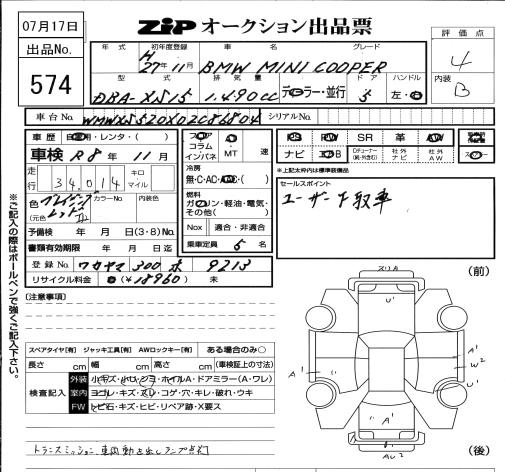 07月17日
ZIP オークション出品票
評価点
4
出品No.
574
年式 初年度登録 車名 グレード
H 27年11月 BMW MINI COOPER
内装
B
型式 排気量 ドア ハンドル
DBA-XS15 1,490cc ディーラー・並行 5 左・
車台No. WMWXS520X02C86804 シリアルNo.
車歴 自家用・レンタ・( )
車検 R8年11月
走行 34,014 キロ マイル
色 ブレイジングレッド カラーNo. 内装色
(元色 )
予備検 年 月 日(3・8)No.
書類有効期限 年 月 日迄
登録No. ワカヤマ 300 ホ 9213
リサイクル料金 (¥18960) 未
フロア コラム インパネ
MT 速
冷房
無・C・AC
燃料
ガソリン・軽油・電気・その他( )
Nox 適合・非適合
乗車定員 5 名
PS PW SR 革 AW
ナビ エアB Dチューナー(純・外含む) 社外ナビ 社外AW
*上記太枠内は標準装備品
セールスポイント
ユーザー下取車
※ご記入の際はボールペンで強くご記入下さい。
(注意事項)
スペアタイヤ[有] ジャッキ工具[有] AWロックキー[有] ある場合のみ○
長さ cm 幅 cm 高さ cm (車検証上の寸法)
検査記入
外装 小キズ・小凹・シミ・ホイルA・ドアミラー(A・ワレ)
室内 ヨゴレ・キズ・スレ・コゲ・穴・キレ・破れ・ウキ
FW トビ石・キズ・ヒビ・リペア跡・X要ス
トランスミッション、車両動き出しランプ点灯
(前)
スリA
U'
A'
W2
A'
U'
A'
U'
AU2
(後)